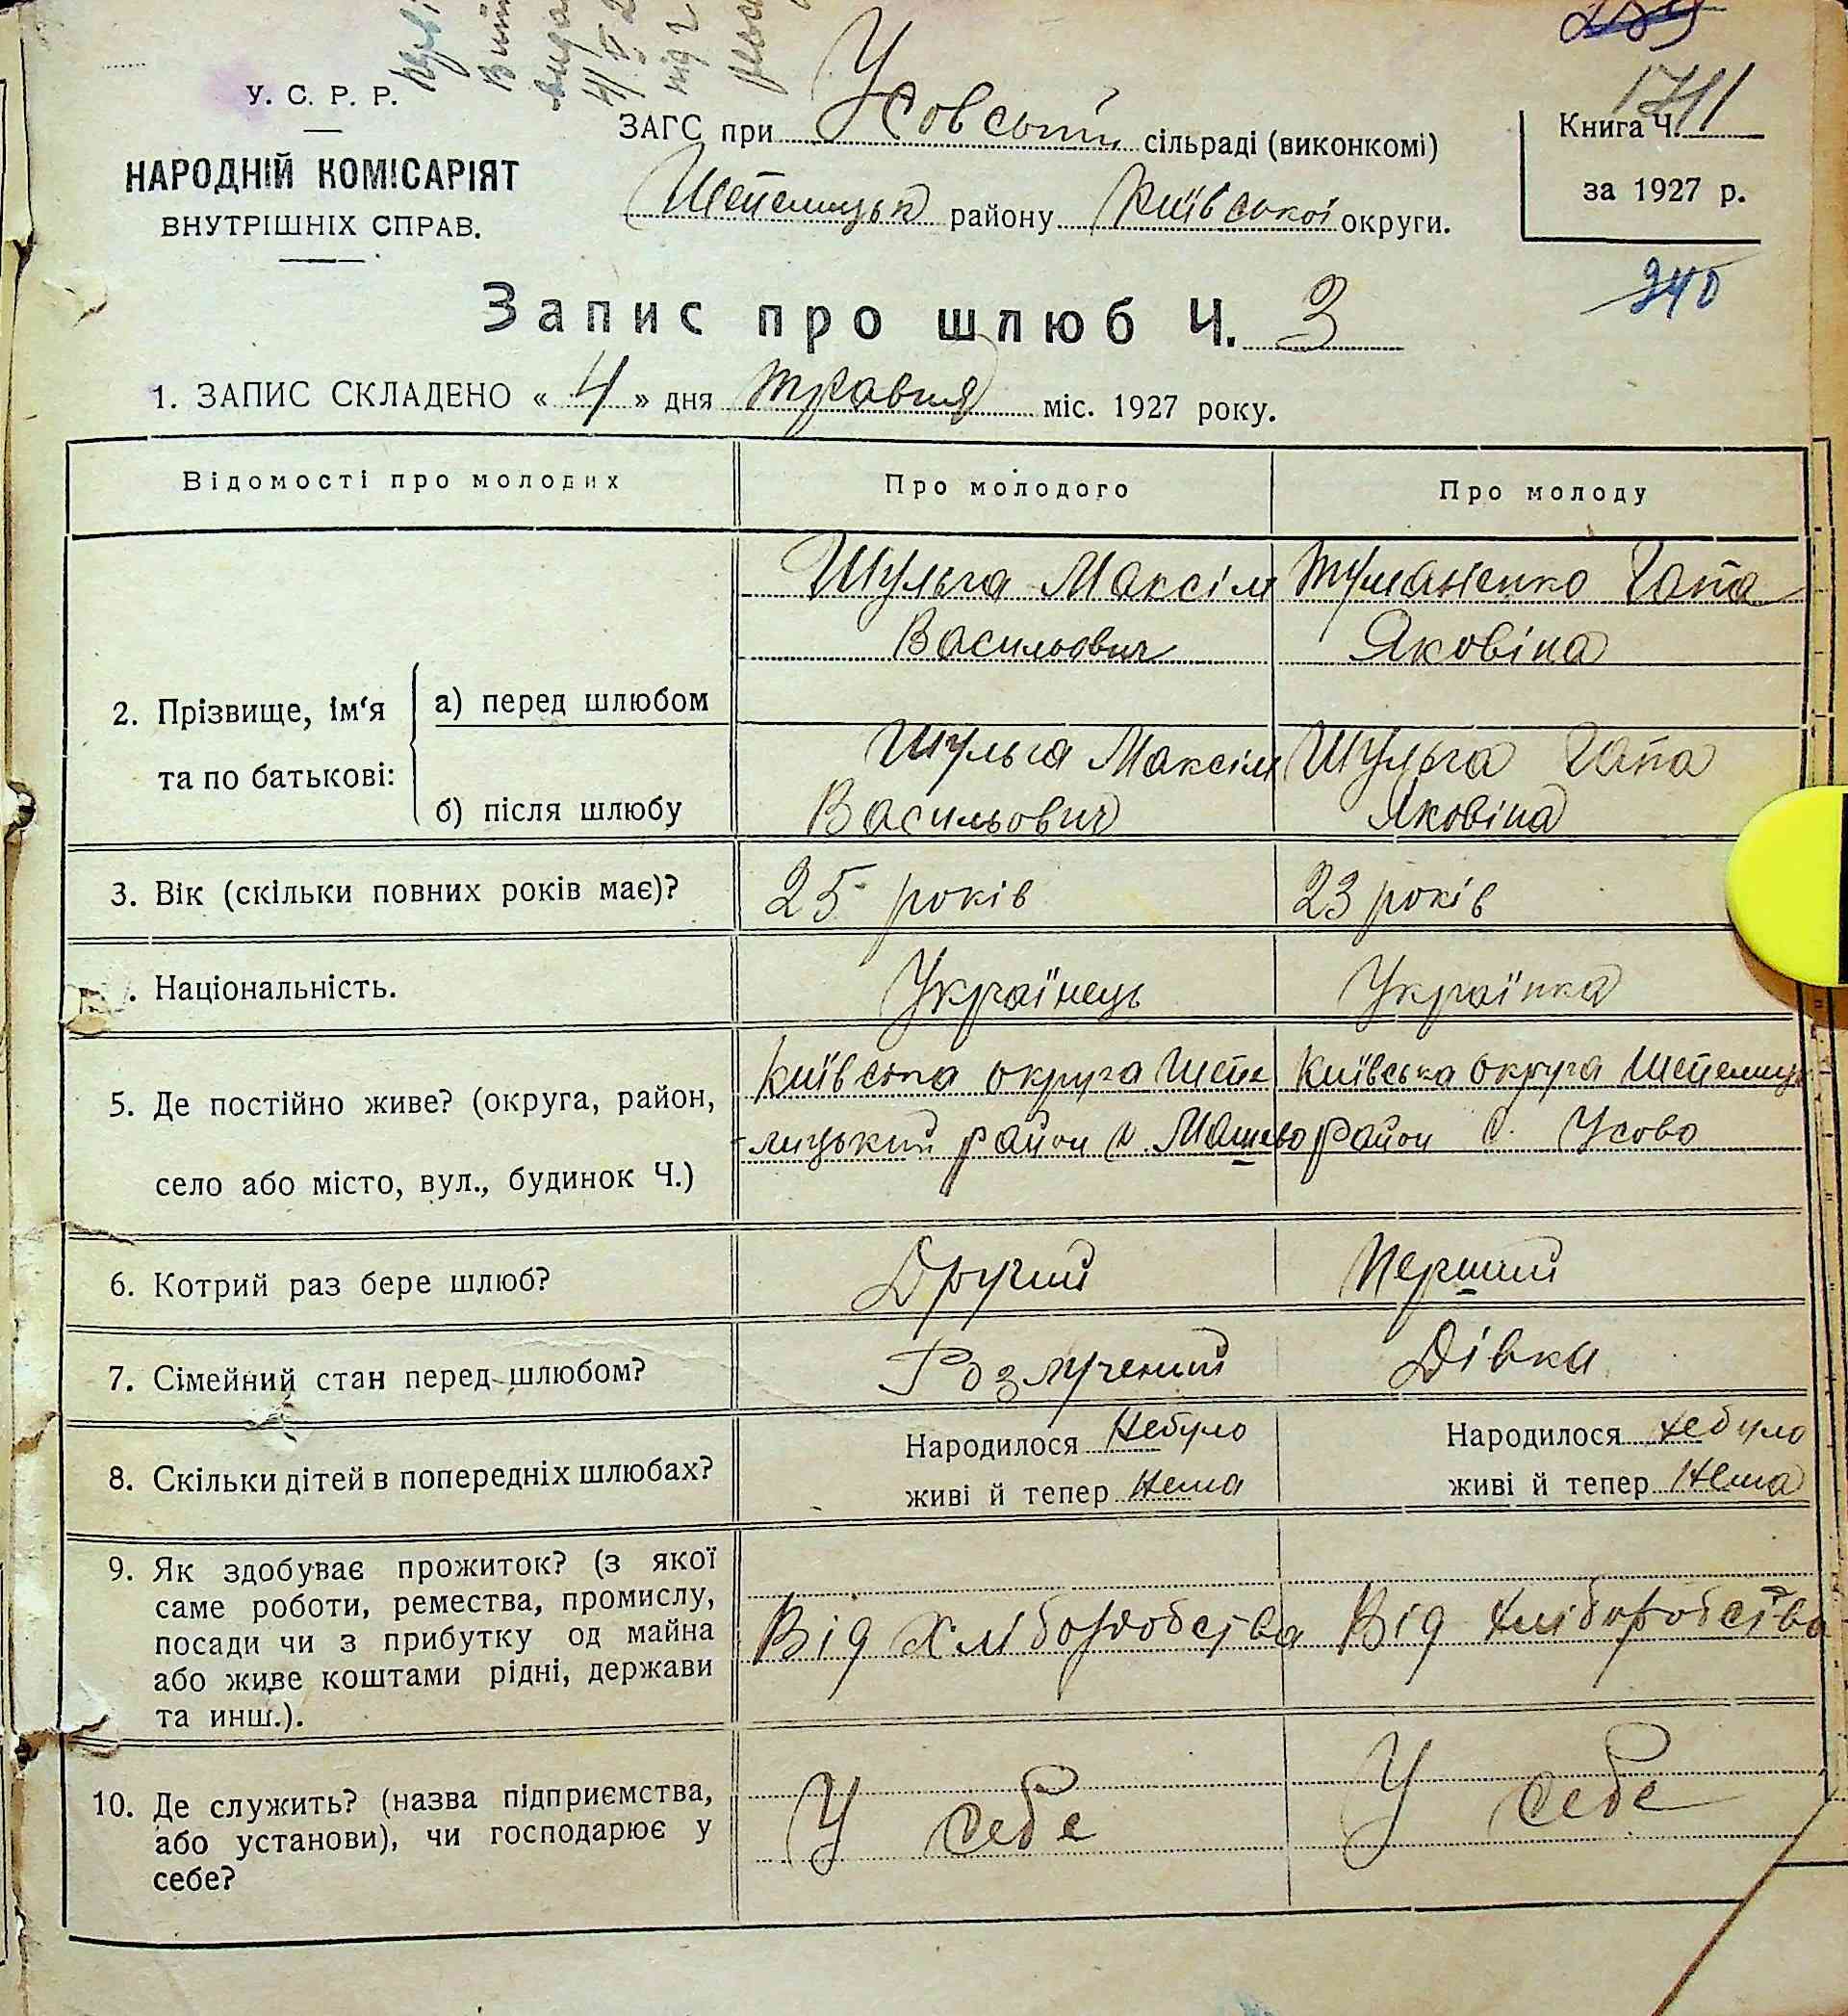 У. С. Р. Р.
НАРОДНІЙ КОМІСАРІЯТ
ВНУТРІШНІХ СПРАВ.
ЗАГС при Усовський сільраді (виконкомі)
Шепелицьк району Київської округи.
Книга Ч.
за 1927 р.
240
Запис про шлюб Ч. 3
1. ЗАПИС СКЛАДЕНО « 4 » дня травня міс. 1927 року.
Відомості про молодих
Про молодого
Про молоду
2. Прізвище, ім‘я та по батькові:
а) перед шлюбом
Шульга Максім
Васильович
Туманенко Гапа
Яковіна
б) після шлюбу
Шульга Максім
Васильович
Шульга Гапа
Яковіна
3. Вік (скільки повних років має)?
25 років
23 років
. Національність.
Українець
Українка
5. Де постійно живе? (округа, район,
село або місто, вул., будинок Ч.)
Київська округа Шепе
-лицький район с. Машево
Київська округа Шепелиць
район с. Усово
6. Котрий раз бере шлюб?
Другий
Перший
7. Сімейний стан перед шлюбом?
Розлучений
Дівка
8. Скільки дітей в попередніх шлюбах?
Народилося Небуло
живі й тепер Нема
Народилося Небуло
живі й тепер Нема
9. Як здобуває прожиток? (з якої
саме роботи, ремества, промислу,
посади чи з прибутку од майна
або живе коштами рідні, держави
та инш.).
Від хліборобства
Від хліборобства
10. Де служить? (назва підприємства,
або установи), чи господарює у
себе?
У себе
У себе